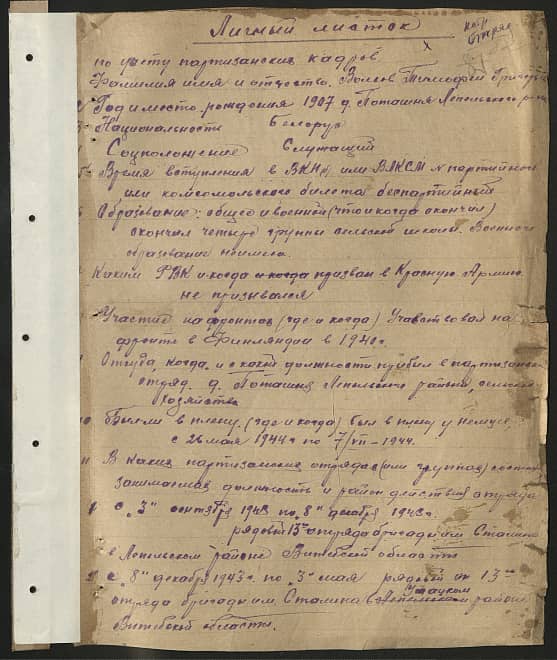 Личный листок
по учету партизанских кадров
Фамилия имя и отчество. Тимофей
Год и место рождения 1907 д. Поташня Лепельского
Национальность Белорус
Соцположение Служащий
Время вступления в ВКП(б) или ВЛКСМ № партийного
или комсомольского билета беспартийный
Образование: общее и военное (что и когда окончил)
окончил четыре группы сельской школы. Военного
образования не имею.
Каким РВК и когда и когда призван в Красную Армию
не призывался
Участие на фронтах (где и когда) Участвовал на
фронте в Финляндии в 1940 г.
Откуда, когда и с какой должности прибыл в партизанский
отряд. д. Поташня Лепельского района, сельское
хозяйство
10 Был ли в плену (где и когда) был в плену у немцев
с 26 мая 1944 г по 7/VII - 1944.
11 В каких партизанских отрядах (или группах) состоял
занимаемая должность и район действия отряда
с "3" сентября 1943 по "8" декабря 1943 г.
рядовой 13 отряда бригады им Сталина
в Лепельском районе Витебской области
с "8" декабря 1943 г. по "3" мая рядовой 13
отряда бригады им. Сталина Ушацком
Лепельском районе
Витебской области.